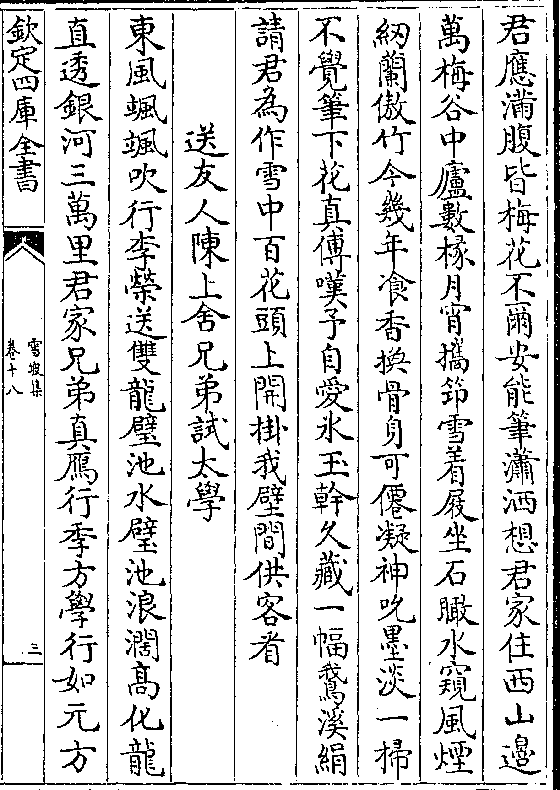 君應滿腹皆梅花不爾安能筆瀟洒想君家住西山邊
萬梅谷中廬數椽月宵攜笻雪着屐坐石瞰水窺風煙
紉蘭傲竹今幾年飡香換骨身可僊凝神吮墨淡一掃
不覺筆下花真傳嘆予自愛氷玉幹久藏一幅鵞溪絹
請君為作雪中百花頭上開掛我壁間供客㸔
送友人陳上舍兄弟試太學
東風颯颯吹行李榮送雙龍璧池水璧池浪濶髙化龍
直透銀河三萬里君家兄弟真鴈行季方學行如元方
欽定四庫全書
雪坡集
卷十八
三